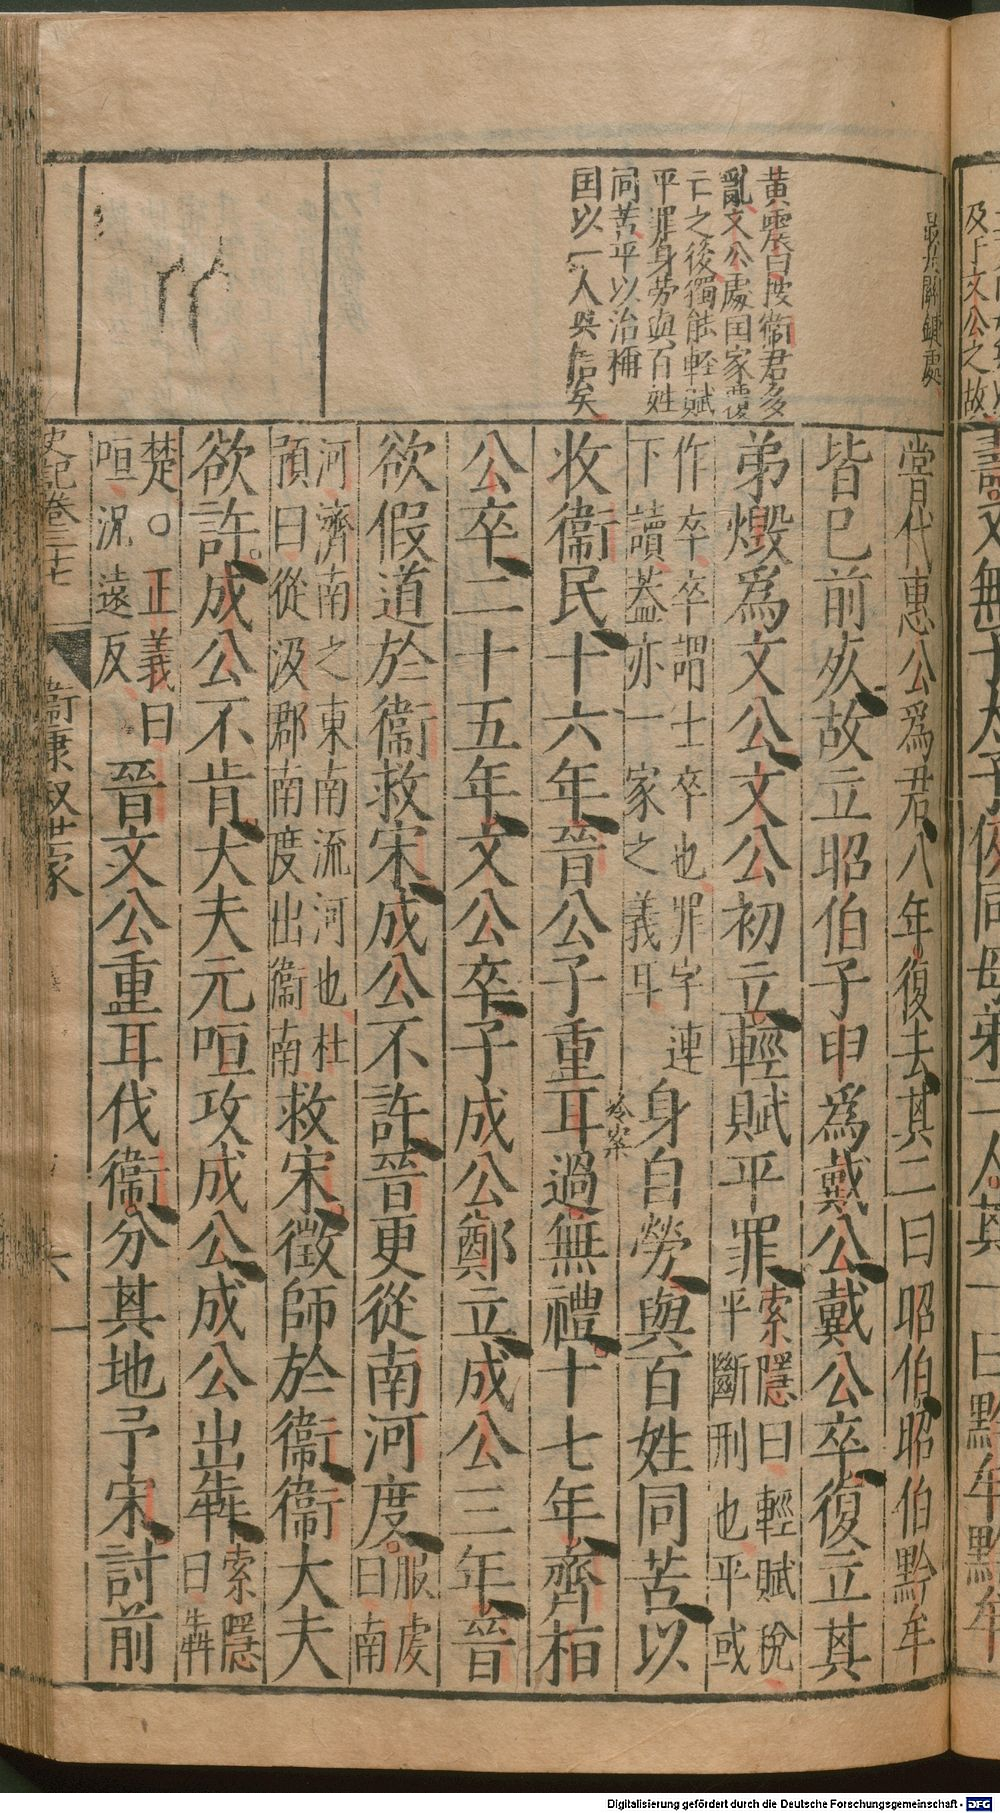 最為關鎖處
黃震曰按衞君多
亂文公處国家覆
亡之後獨能輕賦
平罪身勞與百姓
同苦平以治稱
国以一人興信矣
嘗代惠公爲君八年復去其二曰昭伯昭伯黔牟
皆已前死故立昭伯子申爲戴公戴公卒復立其
弟燬爲文公文公初立輕賦平罪
索隱曰輕賦稅
平斷刑也平或
作卒卒謂士卒也罪字連
下讀蓋亦一家之義耳
身自勞與百姓同苦以
收衞民十六年晉公子重耳過無禮十七年齊桓
公卒二十五年文公卒子成公鄭立成公三年晉
欲假道於衞救宋成公不許晉更從南河度
服虔
曰南
河濟南之東南流河也杜
預曰從汲郡南度出衞南
救宋徵師於衞衞大夫
欲許成公不肯大夫元咺攻成公成公出犇
索隱
曰犇
楚○正義曰
咺況遠反
晉文公重耳伐衞分其地予宋討前
史記卷三十七
衞康叔世家
六
及于文公之故
人其一曰黔牟黔牟
Digitalisierung gefördert durch die Deutsche Forschungsgemeinschaft - DFG